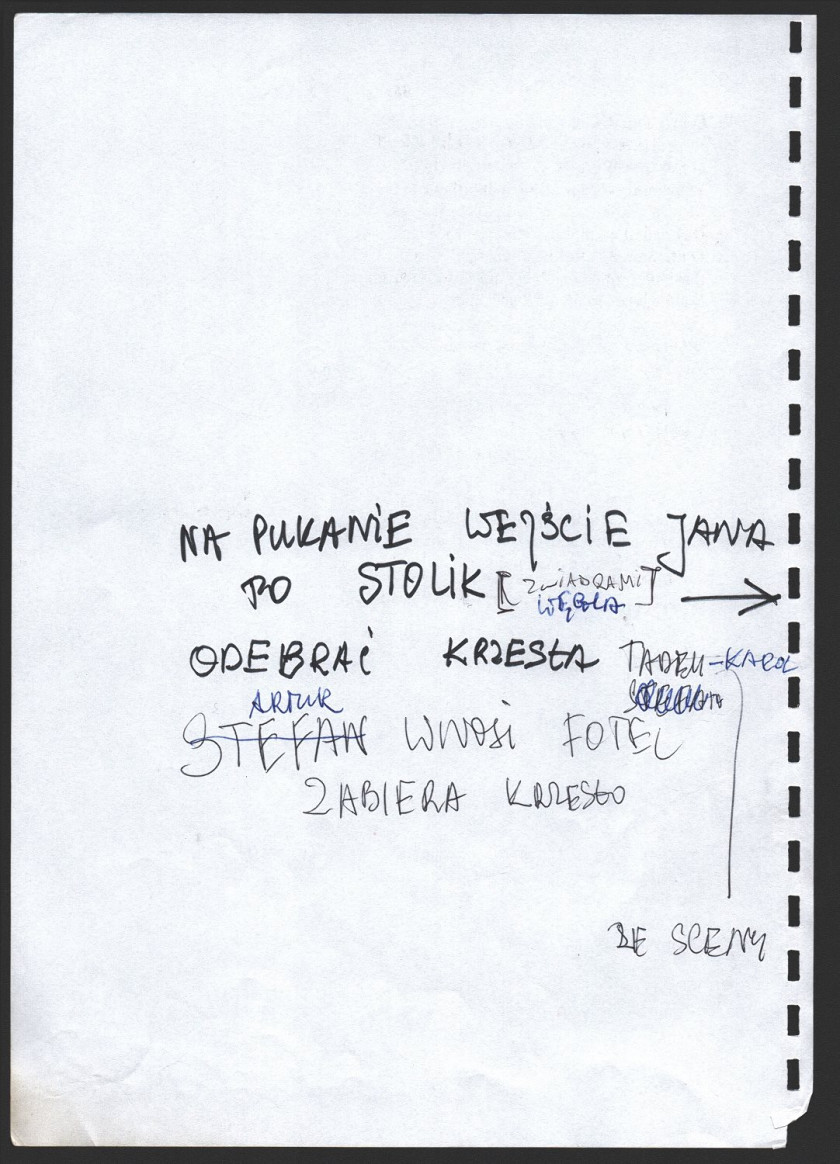 NA PUKANIE WEJŚCIE JANA
PO STOLIK [Z WIADRAMI]
WĘGLA
ODEBRAĆ KRZESŁA TADEU-KAROL
ARTUR
STEFAN WNOSI FOTEL
ZABIERA KRZESŁO
ZE SCENY